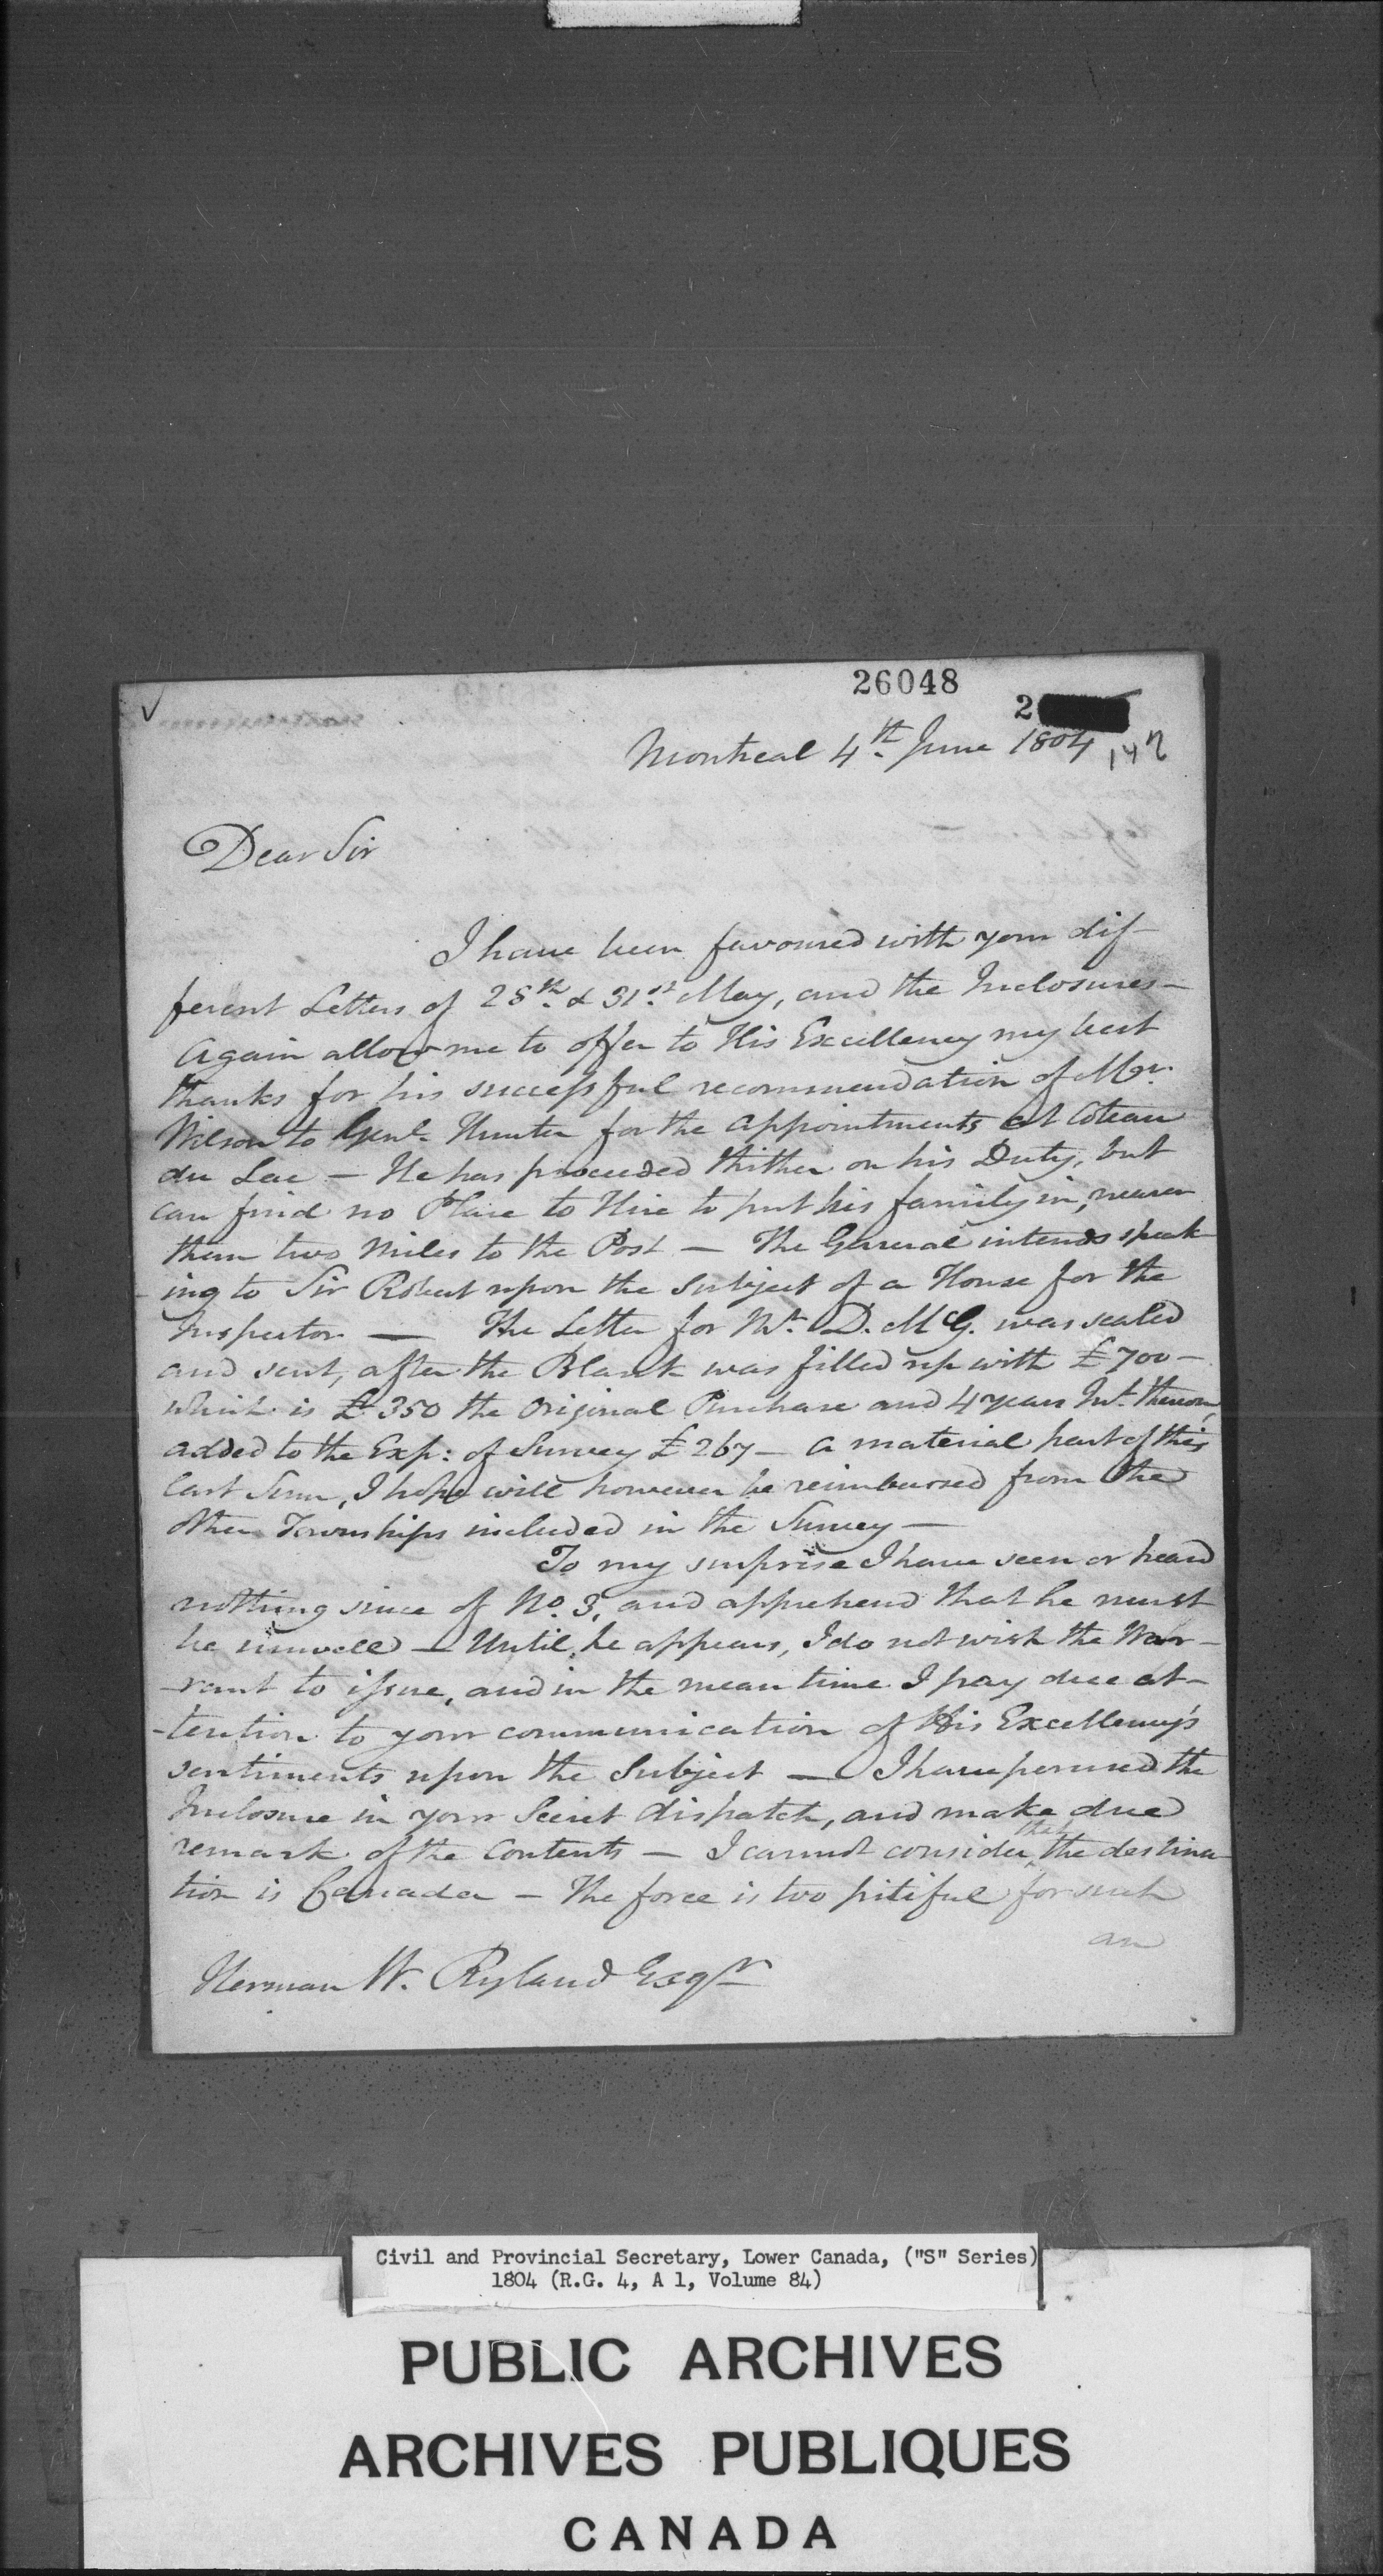 26048
2
Montreal 4th June 1804
147
Dear Sir
I have been favoured with your dif-
ferent Letters of 28th & 31st May, and the Inclosures-
Again allow me to offer to His Excellency my best
thanks for his successful recommendation of Mr.
Wilson to Genl. Hunter for the appointments at Coteau
du Lac - He has proceeded thither on his Duty, but
can find no Place to Hire to put his family in, nearer
than two Miles to the Post - The General intends speak-
-ing to Sir Robert upon the Subject of a House for the
Inspector - The Letter for Mr. D. McG. was sealed
and sent, after the Blank was filled up with £700-
which is £350 the Original Purchase and 4 years Int. thereon,
added to the Exp: of Survey £267- a material part of this
last Sum, I hope will however be reimbursed from the
other Townships included in the Survey-
To my surprise I have seen or heard
nothing since of No. 3, and apprehend that he must
be unwell - Until he appears, I do not wish the War-
-rant to issue, and in the mean time I pay due at-
-tention to your communication of His Excellency's
sentiments upon the Subject - I have perused the
Inclosure in your Secret dispatch, and make due
remark of the Contents - I cannot consider that the destina-
tion is Canada - The force is too pitiful for such
an
Herman W. Ryland Esqr
Civil and Provincial Secretary, Lower Canada, ("S" Series)
1804 (R.G. 4, A 1, Volume 84)
PUBLIC ARCHIVES
ARCHIVES PUBLIQUES
CANADA